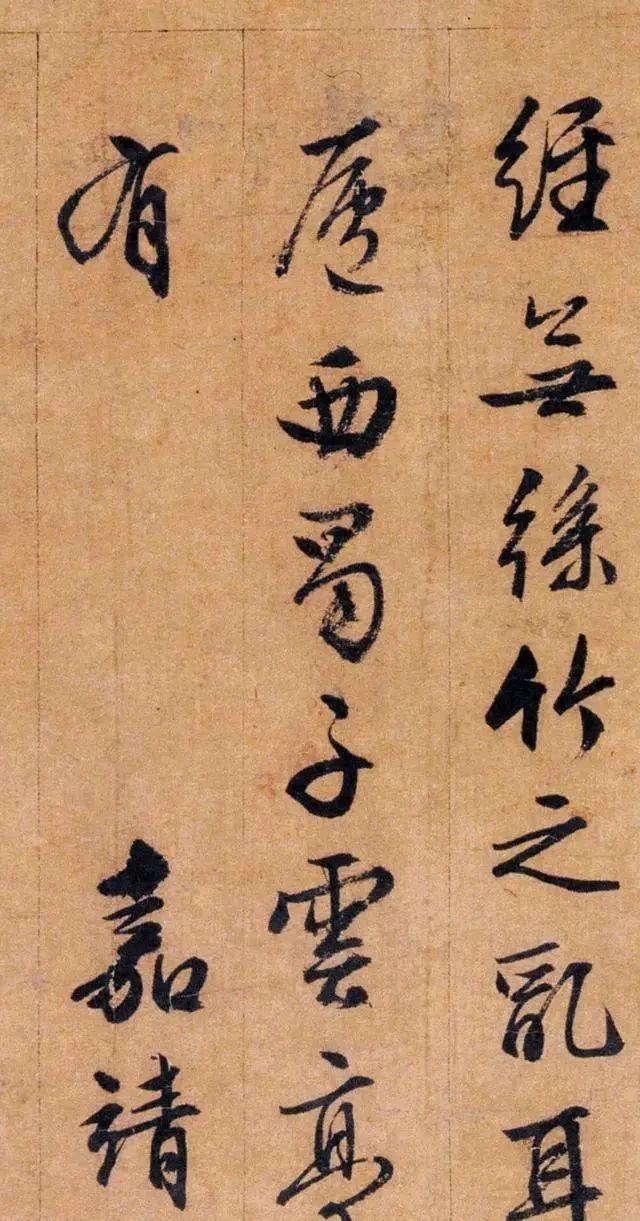 經無絲竹之亂耳
廬西蜀子雲亭
有
嘉靖